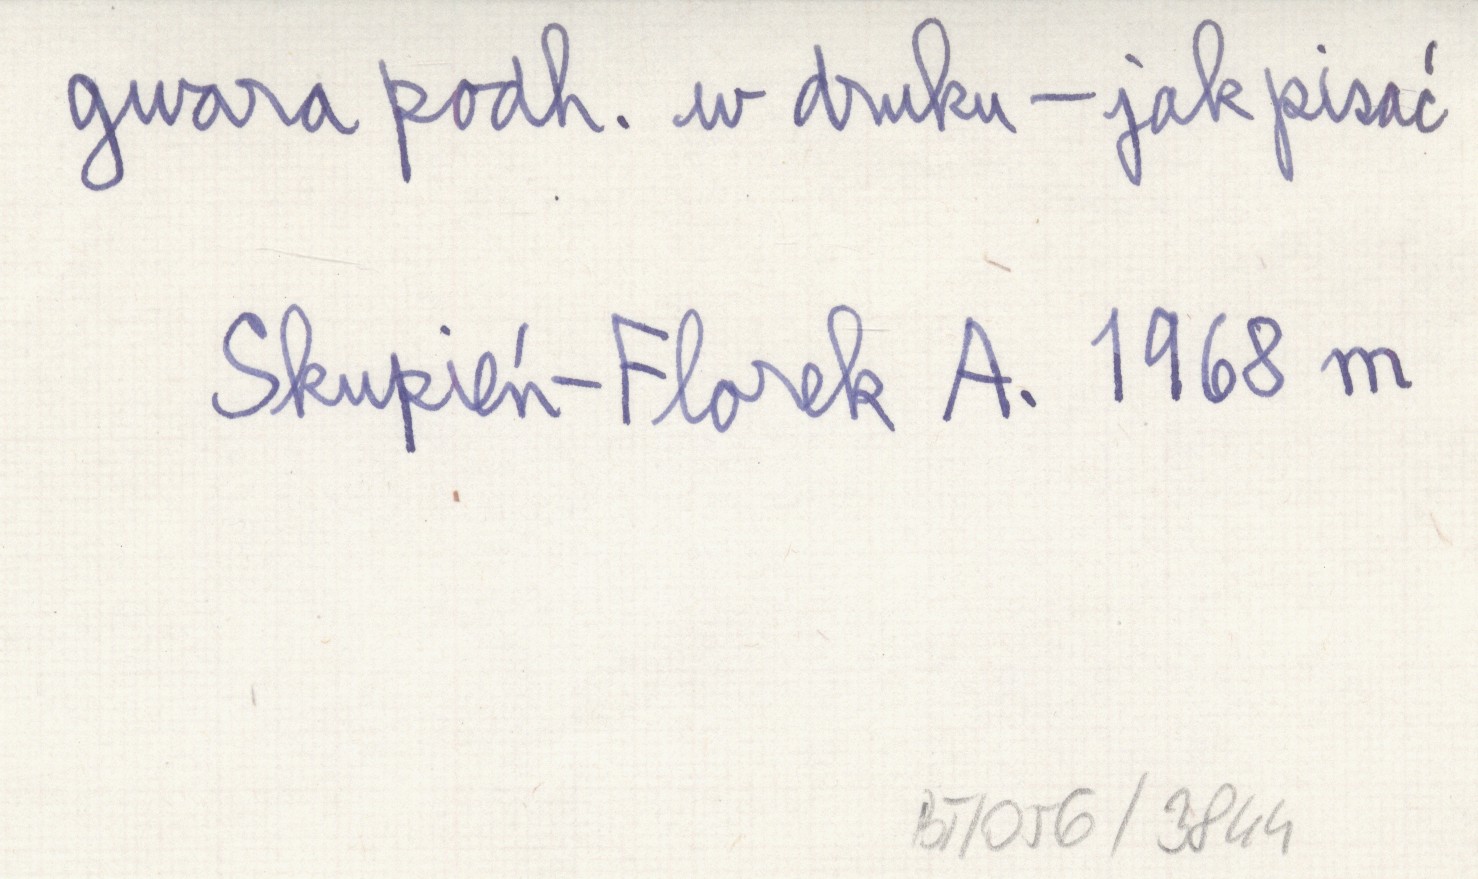 gwara podh. w druku – jak pisać
Skupień-Florek A. 1968 m
BT/056/3844